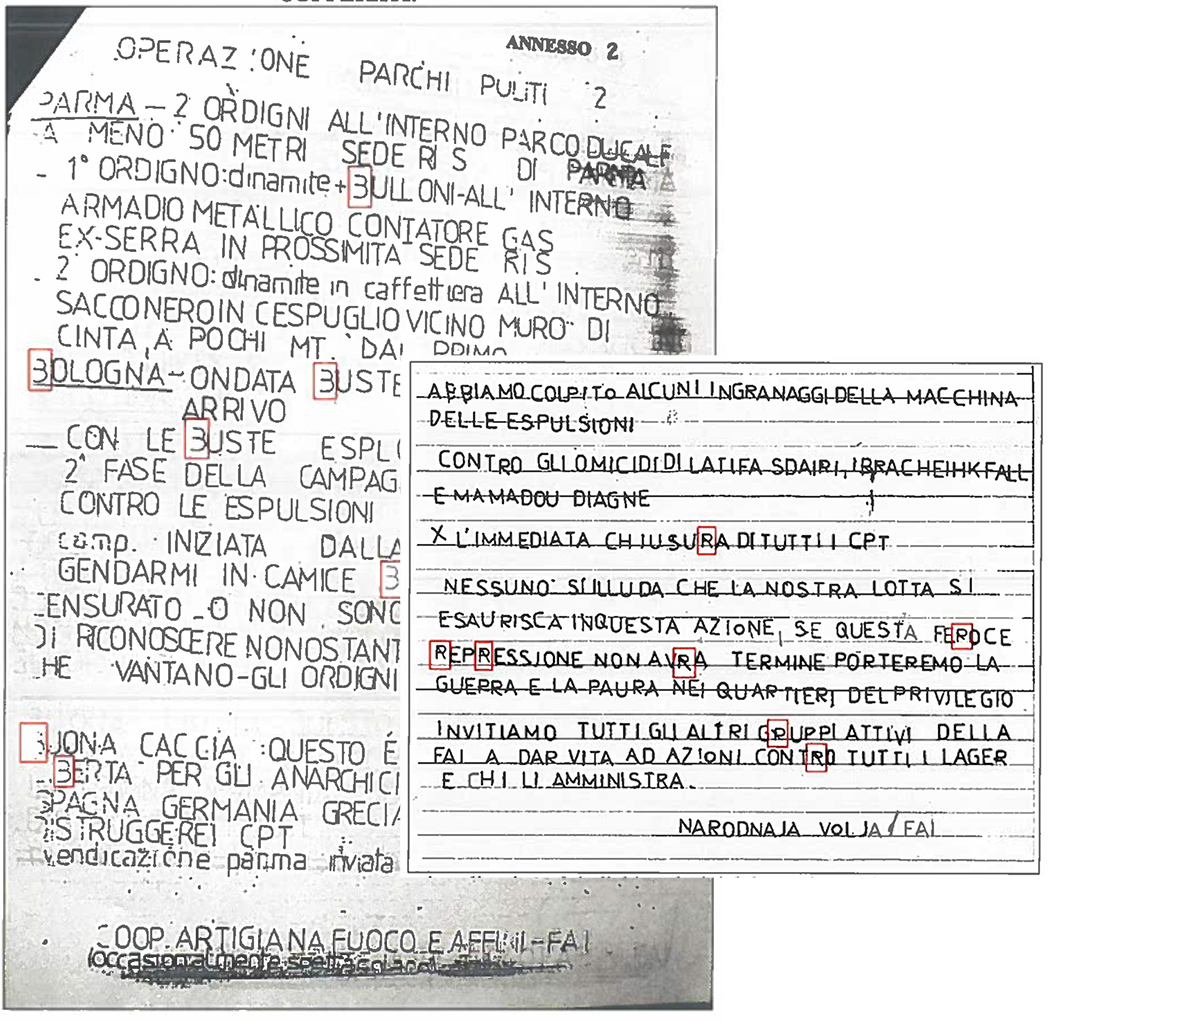 ANNESSO 2
OPERAZ:ONE PARCHI PULITI 2
PARMA - 2 ORDIGNI ALL'INTERNO PARCO DUCALE
A MENO 50 METRI SEDE RIS DI PARMA
- 1° ORDIGNO: dinamite + BULLONI-ALL' INTERNO
ARMADIO METALLICO CONTATORE GAS
EX-SERRA IN PROSSIMITA SEDE RIS
- 2° ORDIGNO: dinamite in caffettiera ALL'INTERNO
SACCO NERO IN CESPUGLIO VICINO MURO DI
CINTA, A POCHI MT. DAL PRIMO
BOLOGNA - ONDATA BUSTE
ARRIVO
— CON LE BUSTE ESPL
2ª FASE DELLA CAMPAG
CONTRO LE ESPULSIONI
comp. INIZIATA DALLA
GENDARMI IN CAMICE B
ENSURATO -O NON SONO
DI RICONOSCERE NONOSTANT
HE VANTANO-GLI ORDIGNI
BUONA CACCIA :QUESTO È
BERTA PER GLI ANARCHICI
SPAGNA GERMANIA GRECIA
DISTRUGGERE I CPT
vendicazione parma inviata
COOP. ARTIGIANA FUOCO E AFFINI-FAI
(occasionalmente
ABBIAMO COLPITO ALCUNI INGRANAGGI DELLA MACCHINA
DELLE ESPULSIONI
CONTRO GLI OMICIDI DI LATIFA SDAIRI, IBRACHEIHK FALL
E MAMADOU DIAGNE
X L'IMMEDIATA CHIUSURA DI TUTTI I CPT
NESSUNO SI ILLUDA CHE LA NOSTRA LOTTA SI
ESAURISCA IN QUESTA AZIONE, SE QUESTA FEROCE
REPRESSIONE NON AVRA TERMINE PORTEREMO LA
GUERRA E LA PAURA NEI QUARTIERI DEL PRIVILEGIO
INVITIAMO TUTTI GLI ALTRI GRUPPI ATTIVI DELLA
FAI A DAR VITA AD AZIONI CONTRO TUTTI I LAGER
E CHI LI AMMINISTRA.
NARODNAJA VOLJA / FAI